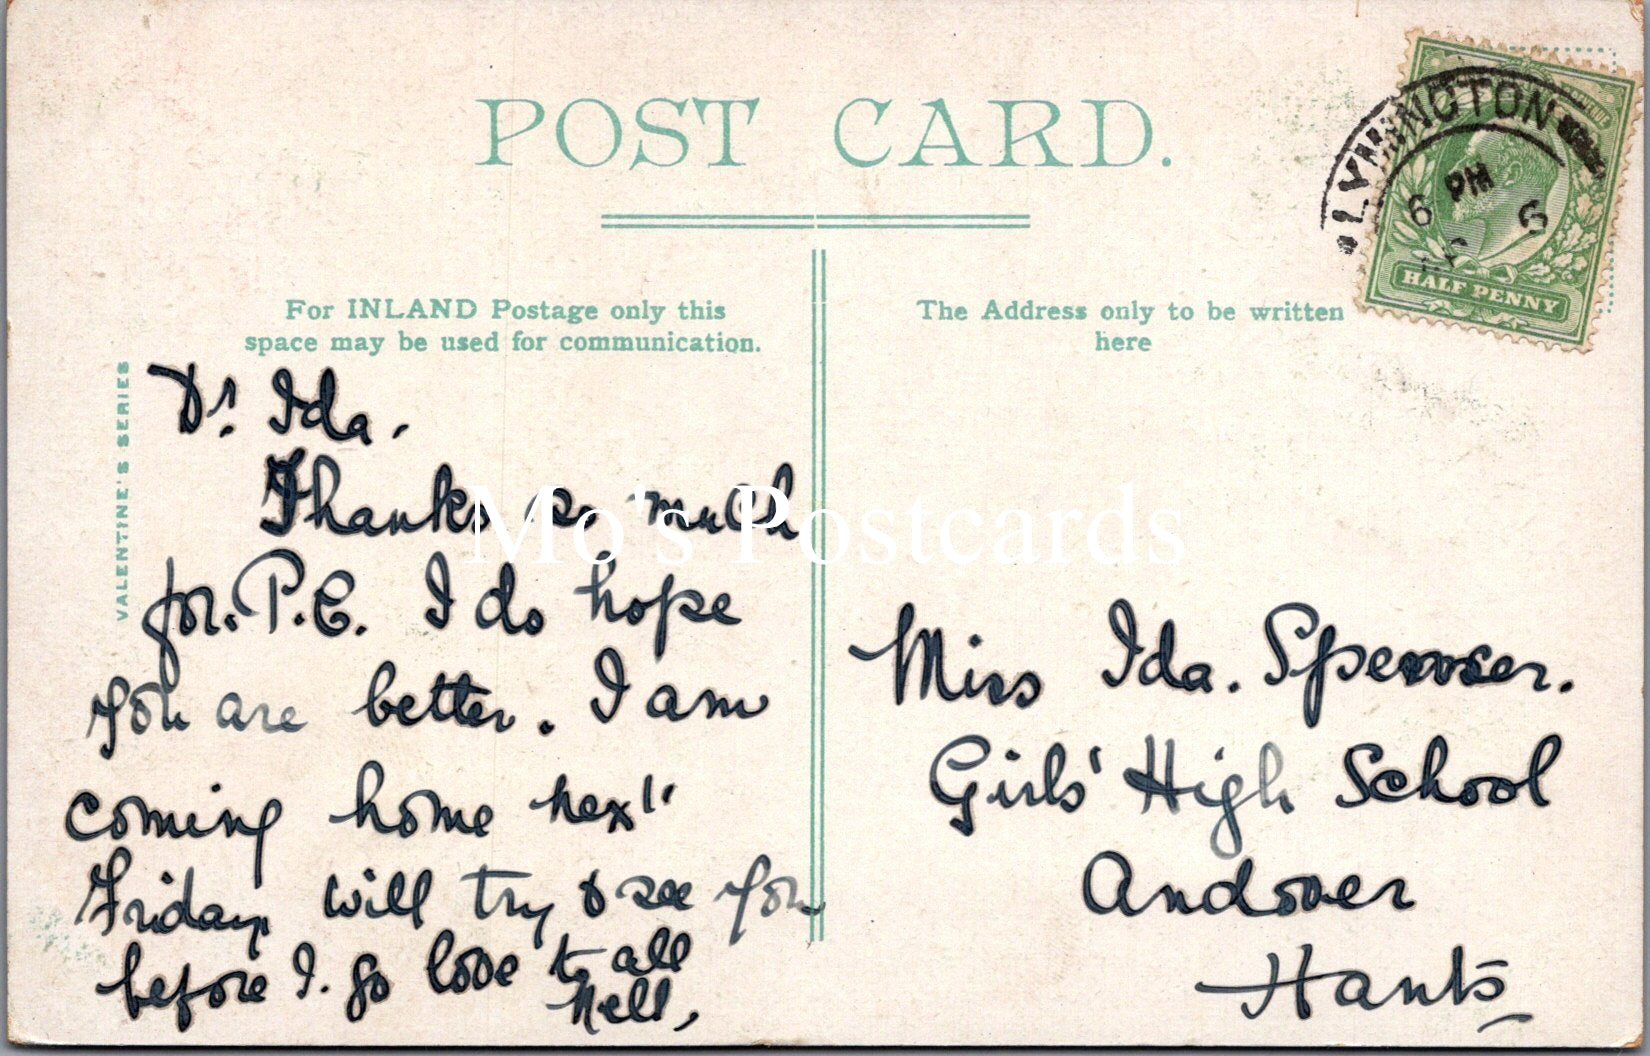 POST CARD.
For INLAND Postage only this
space may be used for communication.
The Address only to be written
here
VALENTINE'S SERIES
LYMINGTON
6 PM
6
HALF PENNY
Dr. Ida.
Thanks so much
for. P.C. I do hope
you are better. I am
coming home next
Friday will try to see you
before I. go love to all
Nell,
Miss Ida. Spencer.
Girls' High School
Andover
Hants
Mo's Postcards